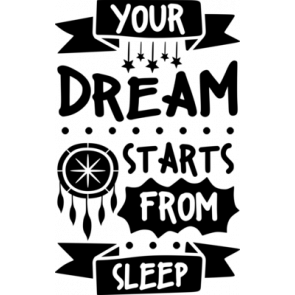 YOUR
DREAM
STARTS
FROM
SLEEP